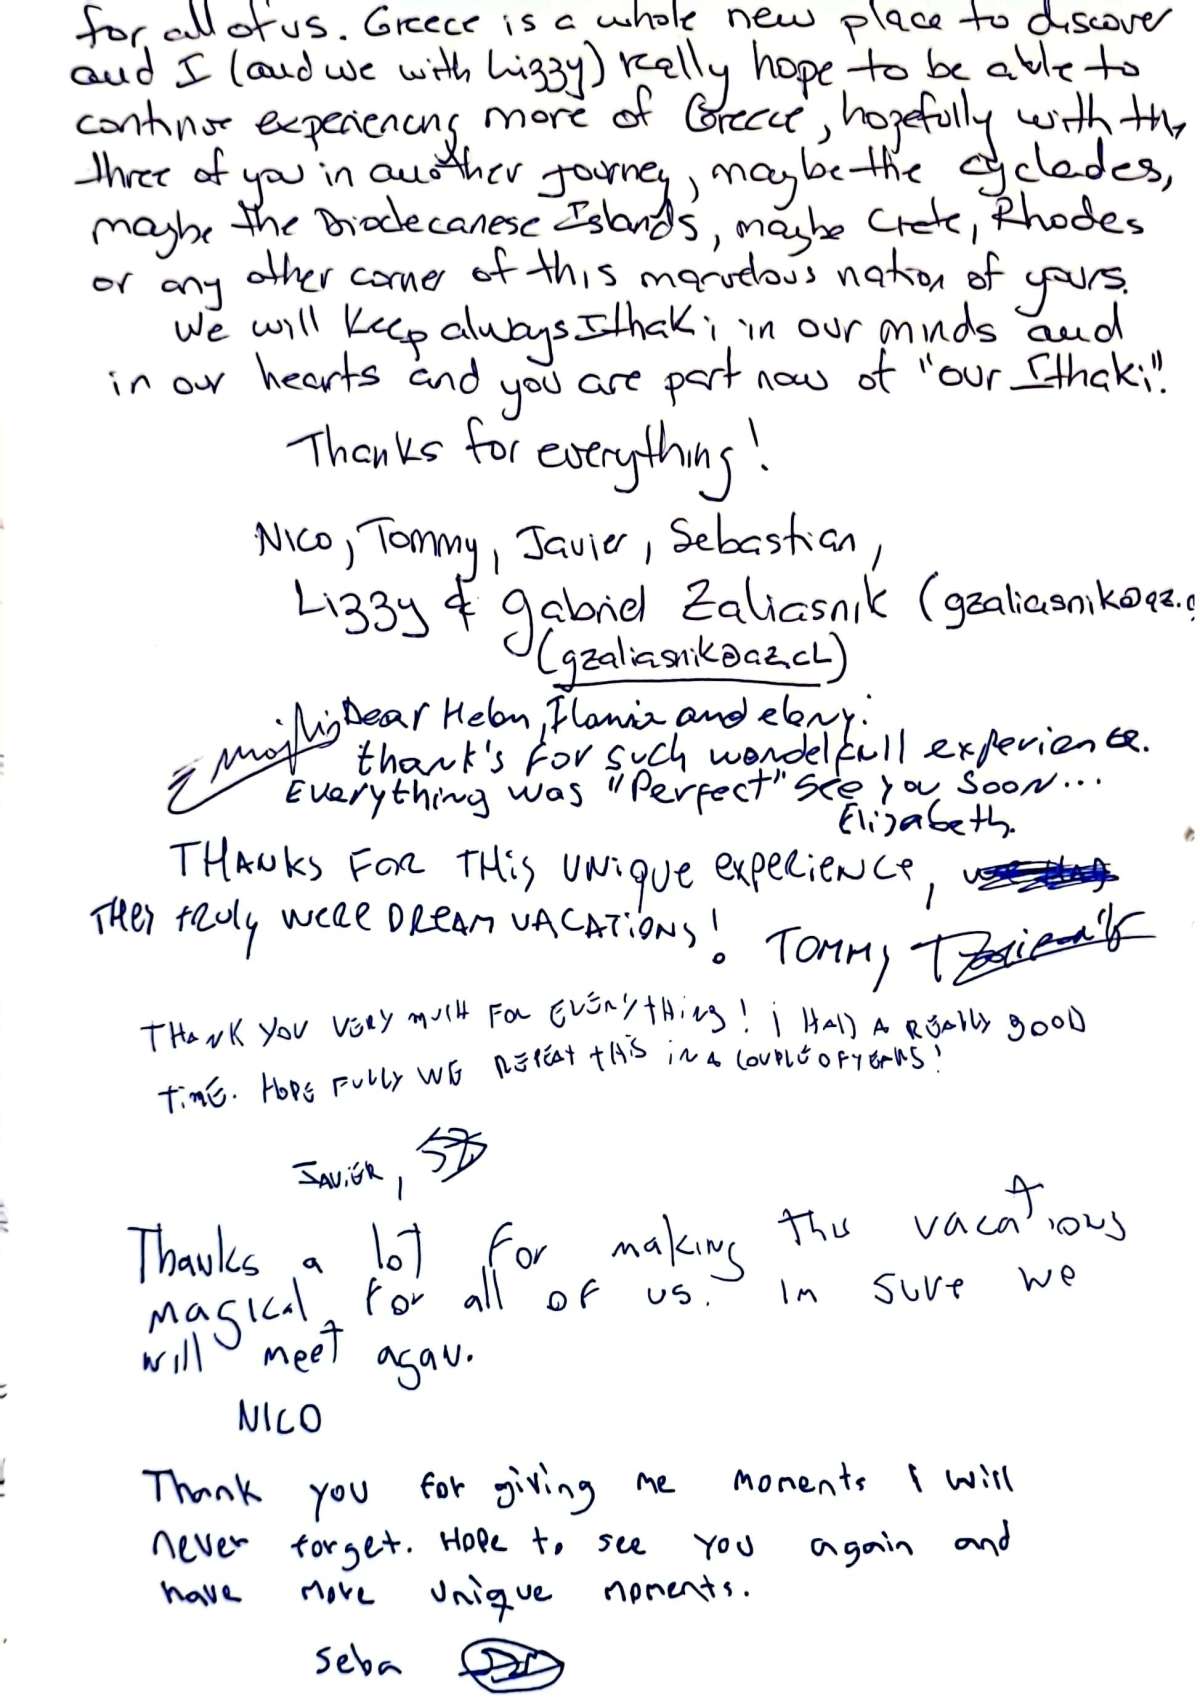 for all of us. Greece is a whole new place to discover
and I (and we with Lizzy) really hope to be able to
continue experiencing more of Greece, hopefully with the
three of you in another journey, maybe the cyclades,
maybe the Diodecanese Islands, maybe Crete, Rhodes
or any other corner of this marvelous nation of yours.
We will keep always Ithaki in our minds and
in our hearts and you are part now of "our Ithaki".
Thanks for everything!
Nico, Tommy, Javier, Sebastian,
Lizzy & gabriel Zaliasnik (gzaliasnik@az.c
(gzaliasnik@az.cL)
Dear Helen, Ilania and eleny:
thank's For Such wondelfull experience.
Everything was "Perfect" See you Soon...
Elizabeth.
THANKS FOR THIS UNIQUE EXPERIENCE,
THEY TRULY WERE DREAM VACATIONS! TOMMY
THANK YOU VERY MUCH FOR EVERYTHING! i HAD A REALLY GOOD
TIME. HOPE FULLY WE REPEAT THIS IN A COUPLE OF YEARS!
JAVIER,
Thanks a lot for making this vacations
magical for all of us. Im sure we
will meet again.
NICO
Thank you for giving me moments I will
never forget. Hope to see you again and
have more unique moments.
Seba